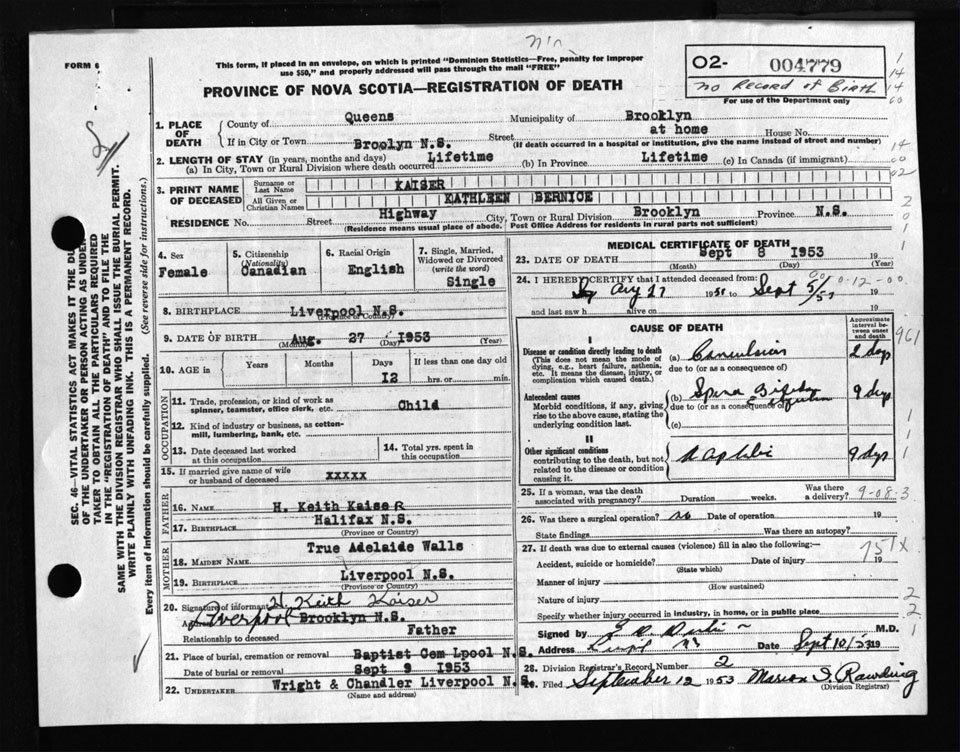 FORM 6
This form, if placed in an envelope, on which is printed "Dominion Statistics—Free, penalty for improper
use $50," and properly addressed will pass through the mail "FREE"
PROVINCE OF NOVA SCOTIA—REGISTRATION OF DEATH
O2- 004779
no Record of Birth
For use of the Department only
1. PLACE OF DEATH
County of Queens Municipality of Brooklyn
If in City or Town Broolyn N.S. Street at home House No.
(If death occurred in a hospital or institution, give the name instead of street and number)
2. LENGTH OF STAY (in years, months and days)
(a) In City, Town or Rural Division where death occurred Lifetime (b) In Province Lifetime (c) In Canada (if immigrant)
3. PRINT NAME OF DECEASED
Surname or Last Name KAISER
All Given or Christian Names KATHLEEN BERNICE
RESIDENCE No. Street Highway City, Town or Rural Division Brooklyn Province N.S.
(Residence means usual place of abode. Post Office Address for residents in rural parts not sufficient)
4. Sex Female
5. Citizenship (Nationality) Canadian
6. Racial Origin English
7. Single, Married, Widowed or Divorced (write the word) Single
8. BIRTHPLACE Liverpool N.S.
(Province or Country)
9. DATE OF BIRTH Aug. 27 1953
(Month) (Year)
10. AGE in Years Months Days 12 If less than one day old hrs. or min.
OCCUPATION
11. Trade, profession, or kind of work as spinner, teamster, office clerk, etc. Child
12. Kind of industry or business, as cotton-mill, lumbering, bank, etc.
13. Date deceased last worked at this occupation
14. Total yrs. spent in this occupation
15. If married give name of wife or husband of deceased xxxxx
FATHER
16. NAME H. Keith KaiseR
17. BIRTHPLACE Halifax N.S.
(Province or Country)
MOTHER
18. MAIDEN NAME True Adelaide Walls
19. BIRTHPLACE Liverpool N.S.
(Province or Country)
20. Signature of informant H Keith Kaiser
Liverpool Brooklyn N.S.
Relationship to deceased Father
21. Place of burial, cremation or removal Baptist Cem Lpool N.S.
Date of burial or removal Sept 9 1953
22. UNDERTAKER Wright & Chandler Liverpool N.S.
(Name and address)
MEDICAL CERTIFICATE OF DEATH
23. DATE OF DEATH Sept 8 1953
(Month) (Day) (Year)
24. I HEREBY CERTIFY that I attended deceased from:
Aug 27 19 Sept 19
and last saw h alive on 19
CAUSE OF DEATH
Approximate interval between onset and death
I
Disease or condition directly leading to death
(This does not mean the mode of dying, e.g., heart failure, asthenia, etc. It means the disease, injury, or complication which caused death.)
(a) Convulsion 2 days
due to (or as a consequence of)
Antecedent causes
Morbid conditions, if any, giving rise to the above cause, stating the underlying condition last.
(b) Spina Bifida 9 dys
due to (or as a consequence of)
(c)
II
Other significant conditions
contributing to the death, but not related to the disease or condition causing it.
9 dys
25. If a woman, was the death associated with pregnancy? Duration weeks. Was there a delivery? 9-08-3
26. Was there a surgical operation? no Date of operation 19
State findings Was there an autopsy?
27. If death was due to external causes (violence) fill in also the following:—
Accident, suicide or homicide? Date of injury 19
(State which)
Manner of injury
(How sustained)
Nature of injury
Specify whether injury occurred in industry, in home, or in public place
Signed by M.D.
Address Date Sept 10/53 19
28. Division Registrar's Record Number 2
Filed September 12 1953 Marion S. Rawding
(Division Registrar)
SEC. 46—VITAL STATISTICS ACT MAKES IT THE DUTY
OF THE UNDERTAKER OR PERSON ACTING AS UNDER-
TAKER TO OBTAIN ALL THE PARTICULARS REQUIRED
IN THE "REGISTRATION OF DEATH" AND TO FILE THE
SAME WITH THE DIVISION REGISTRAR WHO SHALL ISSUE THE BURIAL PERMIT.
WRITE PLAINLY WITH UNFADING INK. THIS IS A PERMANENT RECORD.
Every item of information should be carefully supplied. (See reverse side for instructions.)